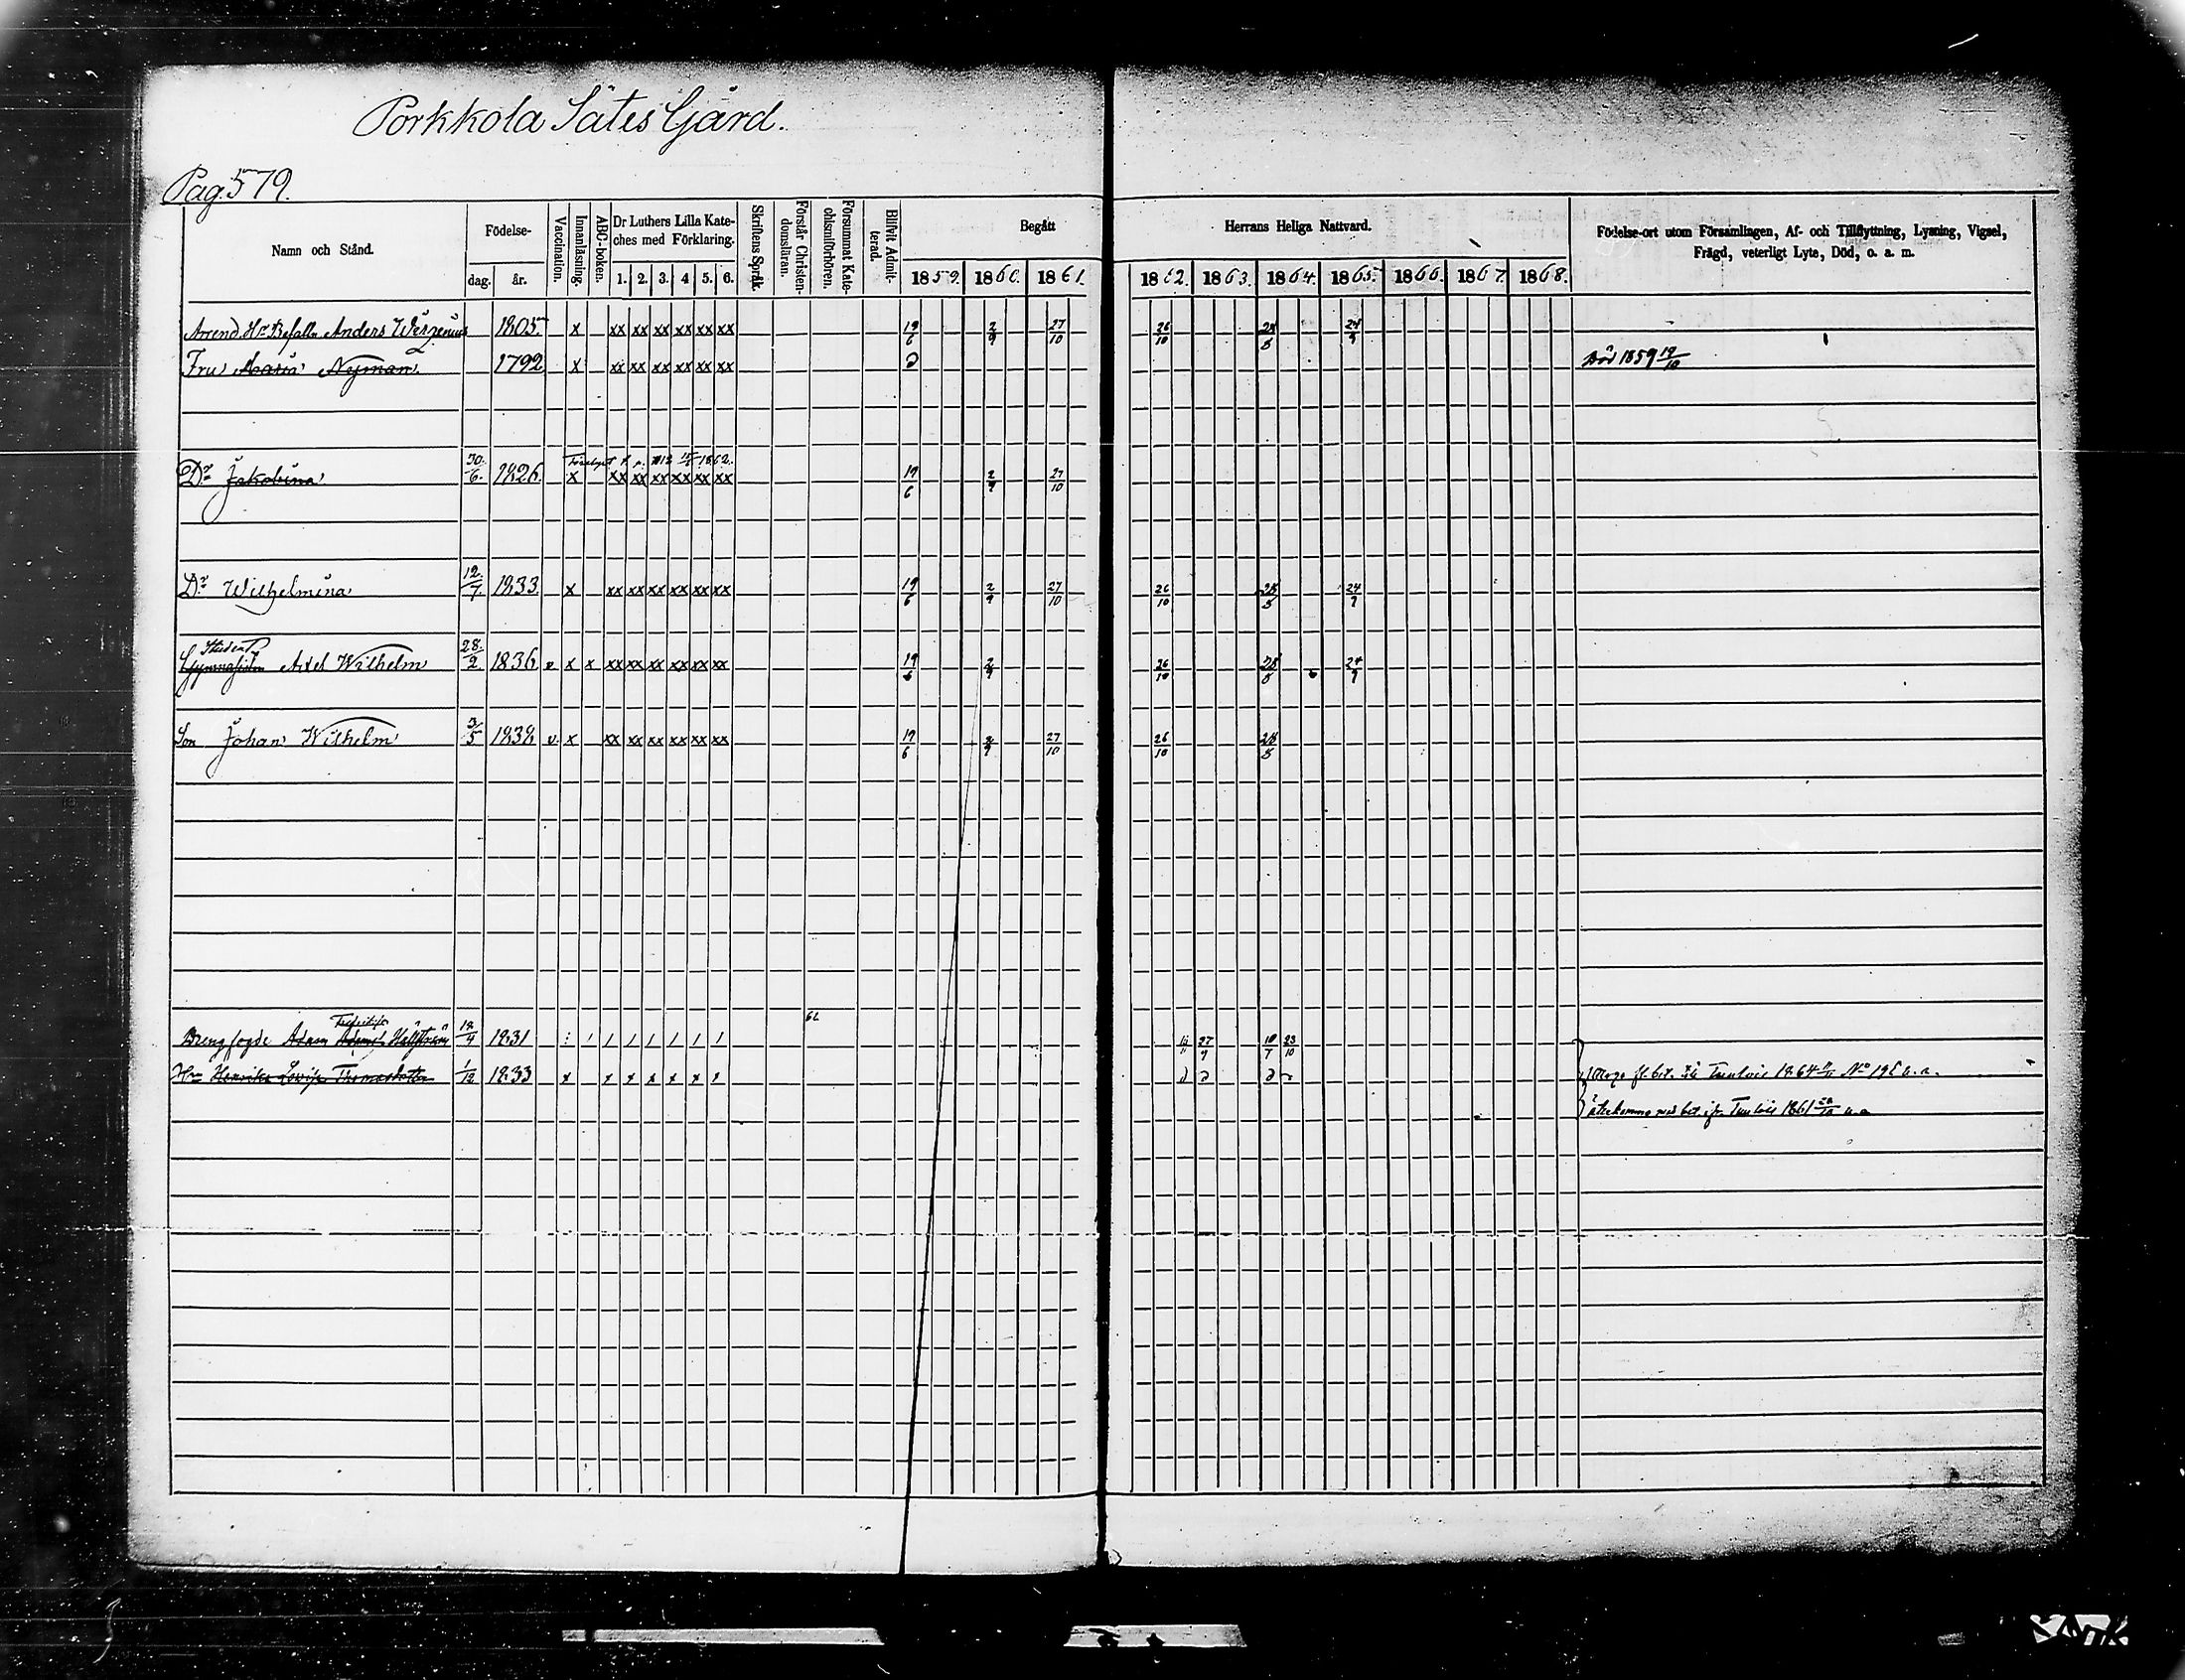 Porkkola Sätes Gård.
Pag. 579.
Namn och Stånd.
Födelse-
dag. år.
Vaccination.
Innanläsning.
ABC-boken.
Dr Luthers Lilla Kate-
ches med Förklaring.
1. 2. 3. 4 5. 6.
Skriftens Språk.
Förstår Christen-
domsläran.
Försummat Kate-
chismiförhören.
Blifvit Admit-
terad.
Begått Herrans Heliga Nattvard.
1859. 1860. 1861. 1862. 1863. 1864. 1865. 1866. 1867. 1868.
Födelse-ort utom Församlingen, Af- och Tillflyttning, Lysning, Vigsel,
Frägd, veterligt Lyte, Död, o. a. m.
Arrend. Hr Befalln Anders 1805 x xx xx xx xx xx xx 19/6 2/9 27/10 26/10 28/8 24/9
Fru Maria Nyman 1792 x xx xx xx xx xx xx Död 1859 19/10
1862.
Dr Jakobina 30/6. 1826. x xx xx xx xx xx xx 19/6 2/9 27/10
Dr Wilhelmina 12/7. 1833. x xx xx xx xx xx xx 19/6 2/9 27/10 26/10 28/8 24/9
Student
Gymnasisten Axel Wilhelm 28./2 1836 v x x xx xx xx xx xx xx 19/6 2/9 26/10 28/8 24/9
Son Johan Wilhelm 3/5 1838 v. x xx xx xx xx xx xx 19/6 2/9 27/10 26/10 28/8
62
Drengfogde Adam Hällström 1831 / / / / / / / 27/9 23/10
Hu Henrika Lovisa Thomasdotter 1/12 1833 x x x x x x x fl. bet. till Tuulois 1864 No 195 u. a.
återkomna med bet. ifr. Tuulois 1861 u. a.